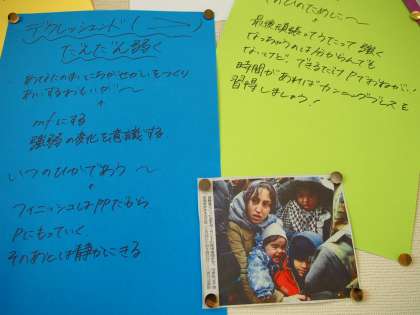 デクレッシェンド(＞)
だんだん弱く
あなたのすいこちがせかいをつくり
あいするおもいが〜
mfにする
強弱の変化を意識する
いつのひかであう〜
フィニッシュはPPだから
Pにもっていく
そのあとは静かにきる
のひのために〜
最後頑張ってうたって強く
なっちゃうのは分からんでも
ないけど、できるだけPでおねがい!
時間があればカンニングブレスも
習得しましょう!